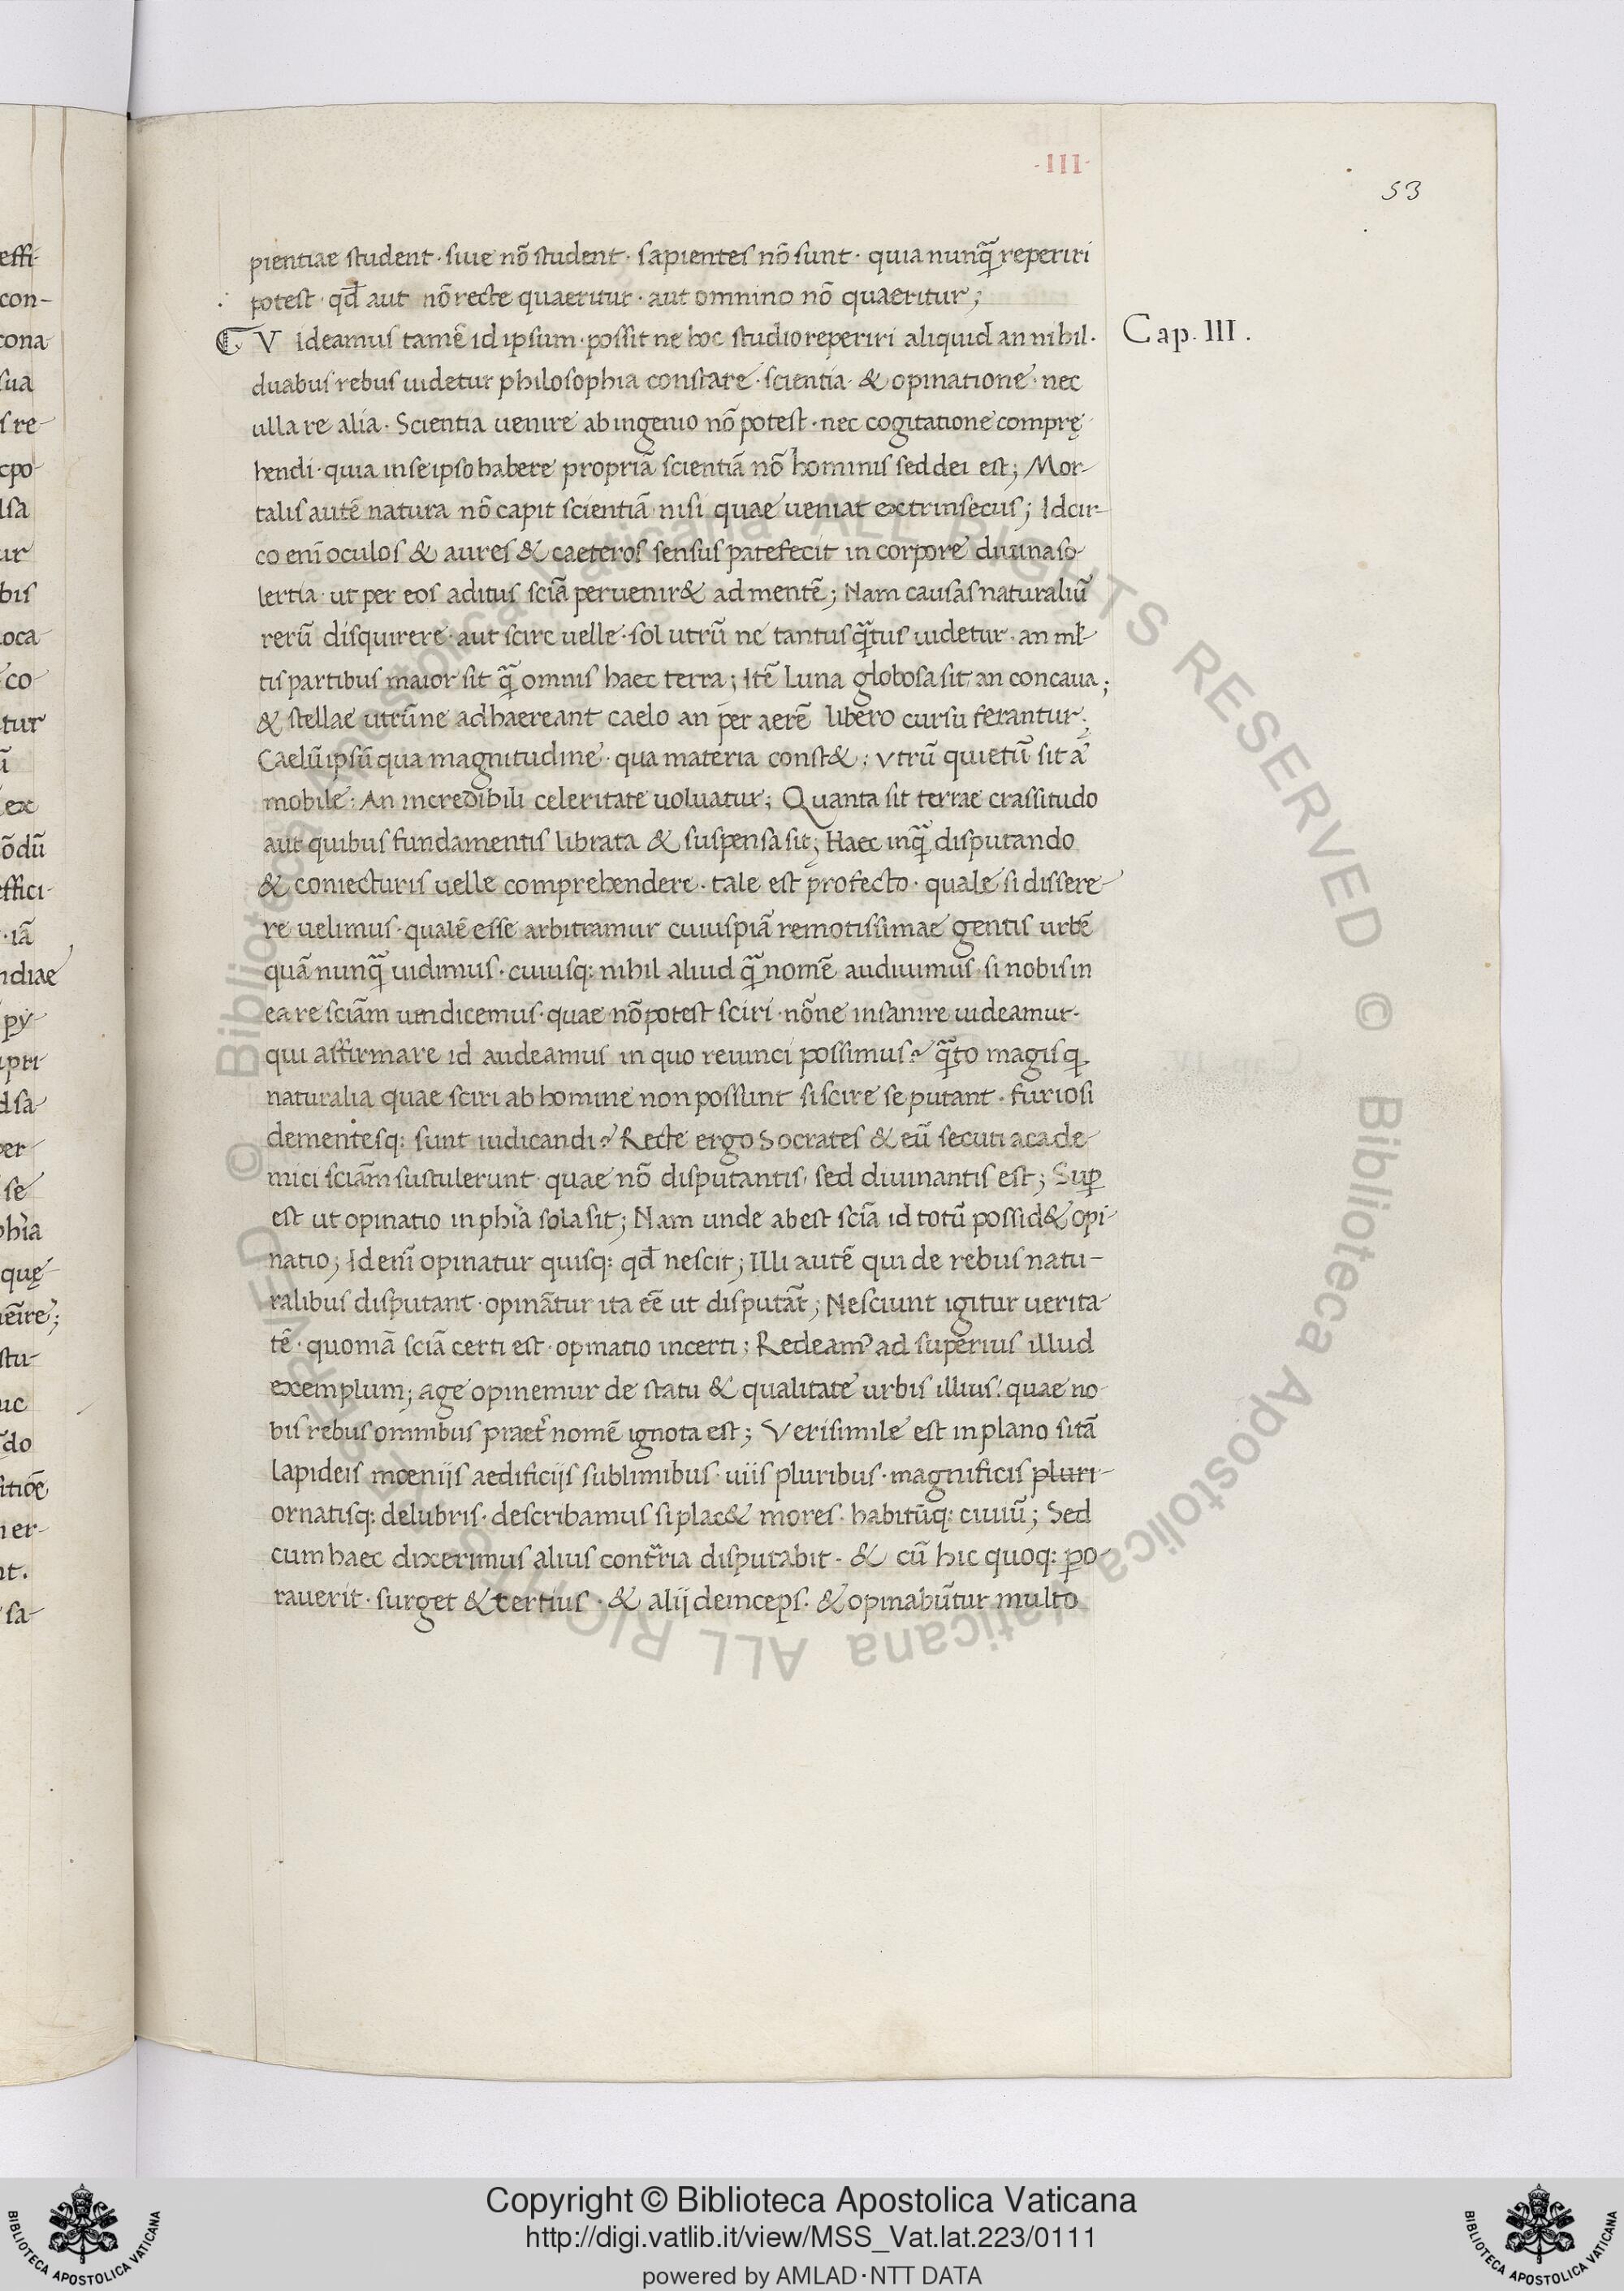 ·III·
53
pientiae student · siue nō student · sapientes nō sunt · quia nunꝗ̄ reperiri
potest · qđ aut nō recte quaeritur · aut omnino nō quaeritur;
Videamus tamē id ipsum · possit ne hoc studio reperiri aliquid an nihil ·
Cap. III.
duabus rebus uidetur philosophia constare · scientia · & opinatione · nec
ulla re alia · Scientia uenire ab ingenio nō potest · nec cogitatione comprę
hendi · quia in se ipso habere propriā scientiā nō hominis sed dei est; Mor-
talis autē natura nō capit scientiā nisi quae ueniat extrinsecus; Idcir-
co enī oculos & aures & caeteros sensus patefecit in corpore diuina so-
lertia · ut per eos aditus sciā peruenir& ad mentē; Nam causas naturaliū
rerū disquirere · aut scire uelle · sol utrū ne tantus ꝗ̄tus uidetur · an ml-
tis partibus maior sit ꝗ̄ omnis haec terra; Itē Luna globosa sit an concaua;
& stellae utrūne adhaereant caelo an per aerē libero cursu ferantur;
Caelū ipsū qua magnitudine · qua materia const&; vtrū quietū sit ā
mobile: An incredibili celeritate uoluatur; Quanta sit terrae crassitudo
aut quibus fundamentis librata & suspensa sit; Haec inꝗ̄ disputando
& coniecturis uelle comprehendere · tale est profecto · quale si dissere-
re uelimus · qualē esse arbitramur cuiuspiā remotissimae gentis urbē
quā nunꝗ̄ uidimus · cuiusq: nihil aliud ꝗ̄ nomē audiuimus · si nobis in
ea re sciām uendicemus · quae nō potest sciri · nōne insanire uideamur ·
qui affirmare id audeamus in quo reiunci possimus? ꝗ̄to magis q
naturalia quae sciri ab homine non possunt si scire se putant · furiosi
dementesq: sunt iudicandi? Recte ergo Socrates & eū secuti acade-
mici sciām sustulerunt · quae nō disputantis · sed diuinantis est; Suꝑ
est ut opinatio in phīa sola sit; Nam unde abest sciā id totū possid& opi-
natio; Id enī opinatur quisq: qđ nescit; Illi autē qui de rebus natu-
ralibus disputant · opināтur ita eē ut disputāt; Nesciunt igitur uerita-
tē · quoniā sciā certi est · opinatio incerti; Redeam' ad superius illud
exemplum; age opinemur de statu & qualitate urbis illius: quae no-
bis rebus omnibus praet̄ nomē ignota est; Verisimile est in plano sitā
lapideis moeniis aedificijs sublimibus · uiis pluribus · magnificis pluri-
ornatisq: delubris · describamus si plac& mores · habitūq: ciuiū; Sed
cum haec dixerimus alius contrīa disputabit · & cū hic quoq: ꝑo-
rauerit · surget & tertius · & alij deinceps · & opinabūtur multo
Copyright © Biblioteca Apostolica Vaticana
http://digi.vatlib.it/view/MSS_Vat.lat.223/0111
powered by AMLAD·NTT DATA